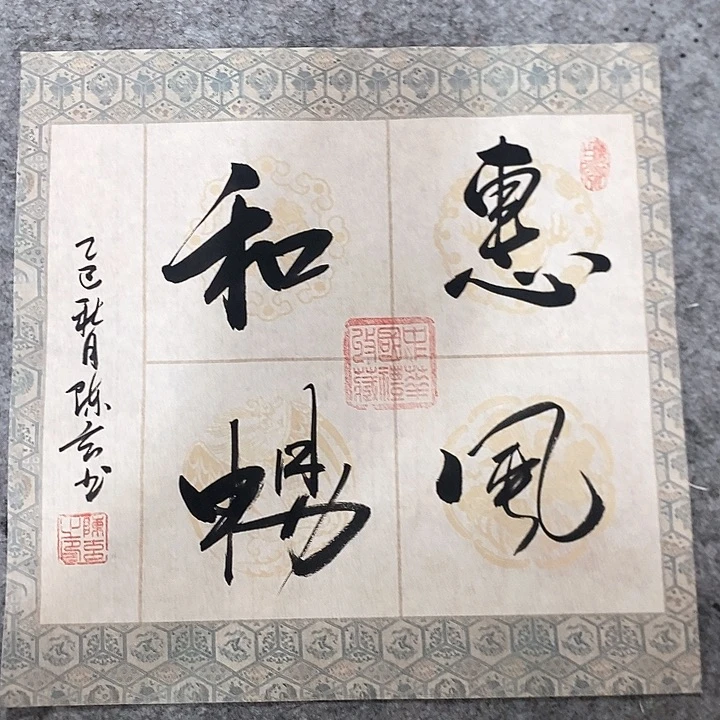 惠風
和暢
乙巳秋月陈玄书
中華
國禮
收藏